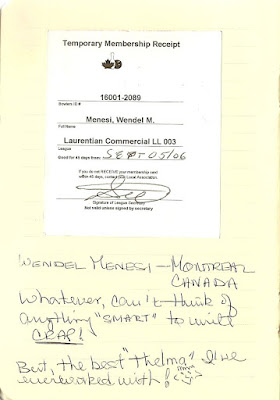 Temporary Membership Receipt
16001-2089
Bowlers ID #
Menesi, Wendel M.
Full Name
Laurentian Commercial LL 003
League
Good for 45 days from: SEPT 05/06
If you do not RECEIVE your membership card
within 45 days, contact your Local Association.
Signature of League Secretary
Not valid unless signed by secretary
WENDEL MENESI — MONTREAL
CANADA
Whatever, can't think of
anything "SMART" to write
CRAP!
But, the best "Thelma" I've
ever worked with!